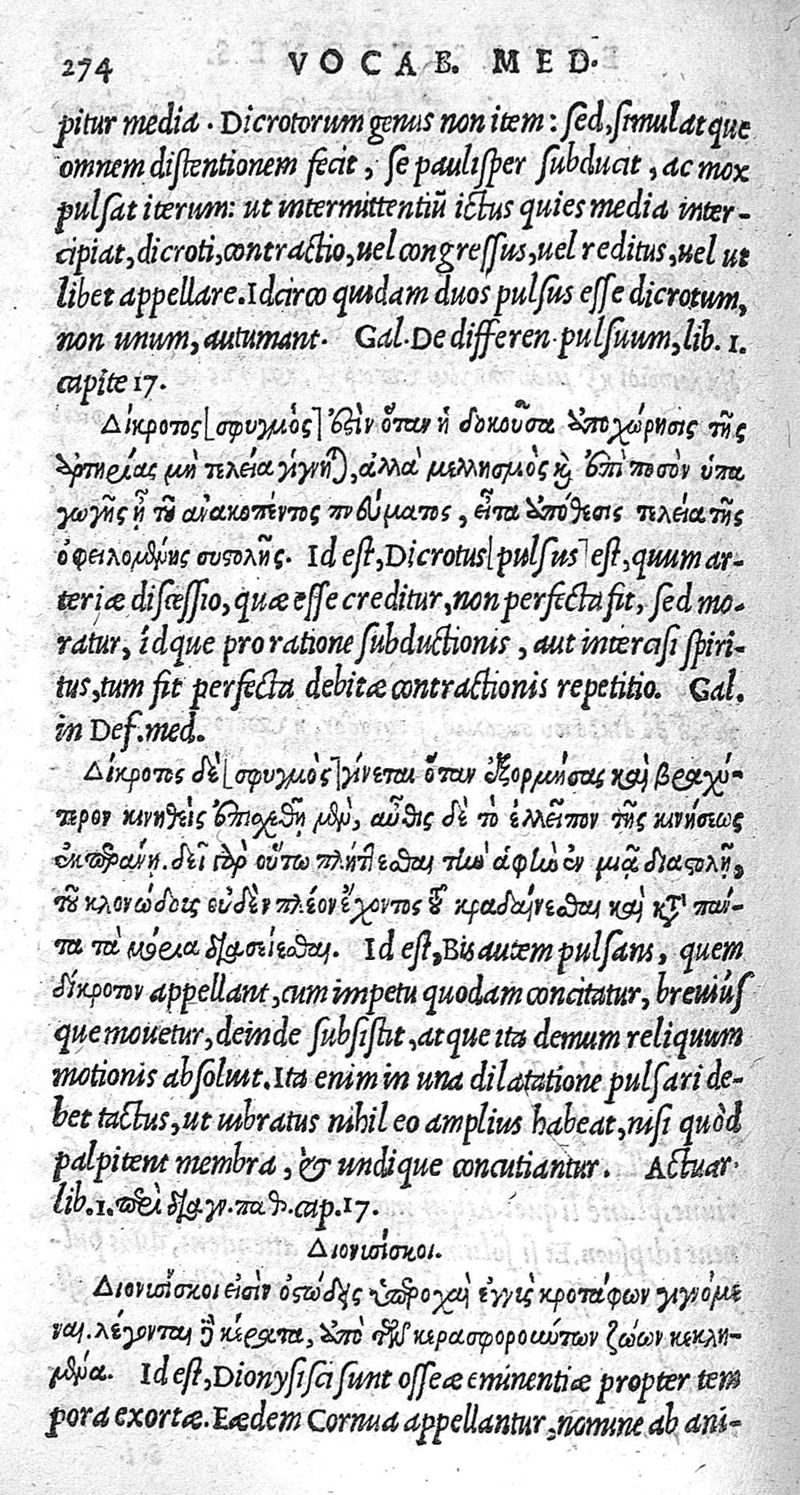 274 VOCAB. MED.
pitur media. Dicrotorum genus non item: sed, simulatque
omnem distentionem fecit, se paulisper subducit, ac mox
pulsat iterum: ut intermittentiū ictus quies media inter-
cipiat, dicroti, contractio, uel congressus, uel reditus, uel ut
libet appellare. Idcirco quidam duos pulsus esse dicrotum,
non unum, autumant. Gal. De differen. pulsuum, lib. 1.
capite 17.
Δίκροτος [σφυγμὸς] ἐστὶν ὅταν ἡ δοκοῦσα ἀποχώρησις τῆς
ἀρτηρίας μὴ τελεία γίγνηται, ἀλλὰ μελλησμὸς καὶ ἐπὶ ποσὸν ὑπα
γωγῆς ἢ τοῦ ἀνακοπέντος πνεύματος, εἶτα ἀπόθεσις τελεία τῆς
ὀφειλομένης συστολῆς. Id est, Dicrotus [pulsus] est, quum ar-
teriæ discessio, quæ esse creditur, non perfecta fit, sed mo-
ratur, idque pro ratione subductionis, aut intercisi spiri-
tus, tum fit perfecta debitæ contractionis repetitio. Gal.
in Def. med.
Δίκροτος δὲ [σφυγμὸς] γίνεται ὅταν ἐξορμήσας καὶ βραχύ-
τερον κινηθεὶς ἐποχεθῇ μὲν, αὖθις δὲ τὸ ἐλλεῖπον τῆς κινήσεως
δεῖ γὰρ οὕτω πλήττεσθαι τὴν ἁφὴν ἐν μιᾷ διαστολῇ,
τοῦ κλονώδους οὐδὲν πλέον ἔχοντος τοῦ κραδαίνεσθαι καὶ κατὰ πάν-
τα τὰ μόρια διασείεσθαι. Id est, Bis autem pulsans, quem
δίκροτον appellant, cum impetu quodam concitatur, breuiús
que mouetur, deinde subsistit, atque ita demum reliquum
motionis absoluit. Ita enim in una dilatatione pulsari de-
bet tactus, ut uibratus nihil eo amplius habeat, nisi quòd
palpitent membra, & undique concutiantur. Actuar.
lib. 1. περὶ διαγν. παθ. cap. 17.
Διονισίσκοι.
Διονισίσκοι εἰσὶν ὀστώδεις ὑπεροχαὶ ἐγγὺς κροτάφων γιγνόμε
ναι. λέγονται δὲ κέρατα, ἀπὸ τῶν κερασφορούντων ζώων κεκλη-
μένα. Id est, Dionysisci sunt osseæ eminentiæ propter tem
pora exortæ. Eædem Cornua appellantur, nomine ab ani-